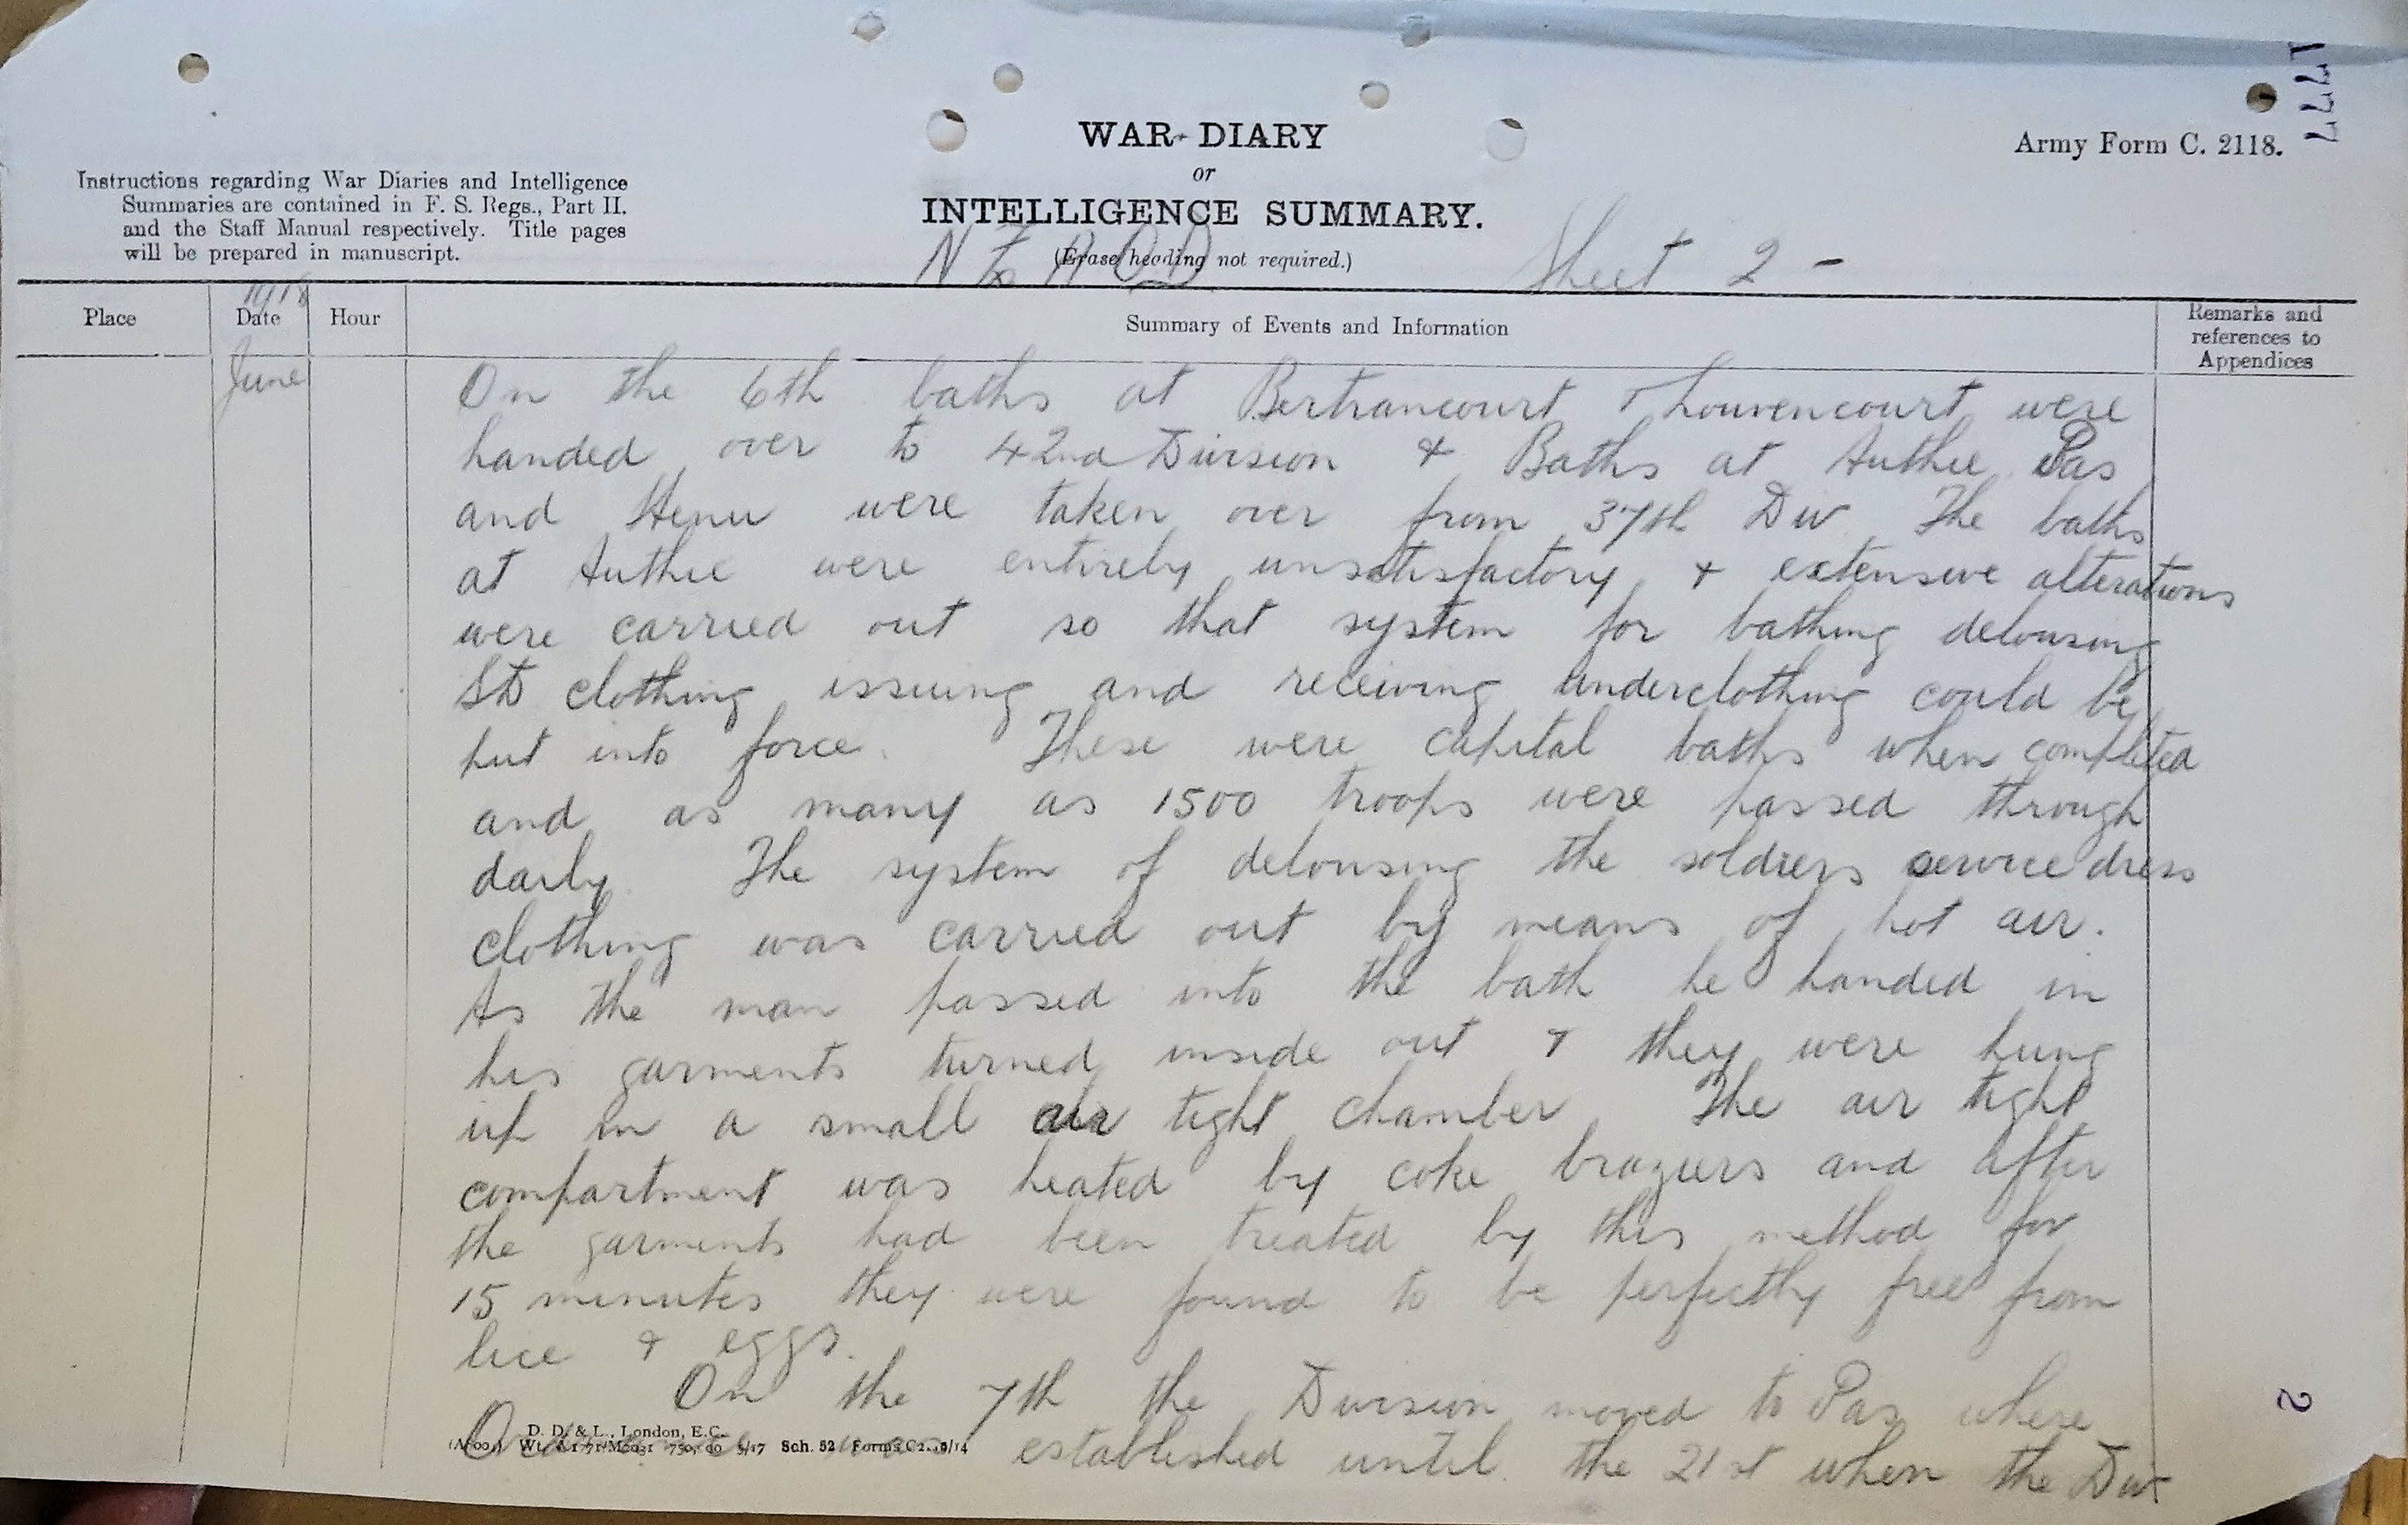 1777
WAR DIARY
or
INTELLIGENCE SUMMARY.
(Erase heading not required.)
Army Form C. 2118.
Instructions regarding War Diaries and Intelligence
Summaries are contained in F. S. Regs., Part II.
and the Staff Manual respectively. Title pages
will be prepared in manuscript.
N Z A O D Sheet 2 -
Place
1918
Date
Hour
Summary of Events and Information
Remarks and
references to
Appendices
June
On the 6th baths at Bertrancourt & Louvencourt were
handed over to 42nd Division & Baths at Authie Pas
and Henu were taken over from 37th Div The baths
at Authie were entirely unsatisfactory & extensive alterations
were carried out so that system for bathing delousing
SD clothing issuing and receiving underclothing could be
put into force. These were capital baths when completed
and as many as 1500 troops were passed through
daily. The system of delousing the soldiers service dress
clothing was carried out by means of hot air.
As the man passed into the bath he handed in
his garments turned inside out & they were hung
up in a small air tight chamber The air tight
compartment was heated by coke braziers and after
the garments had been treated by this method for
15 minutes they were found to be perfectly free from
lice & eggs.
On the 7th the Division moved to Pas where
Ordnance was established until the 21st when the Div
D. D. & L., London, E.C.
Sch. 52
2